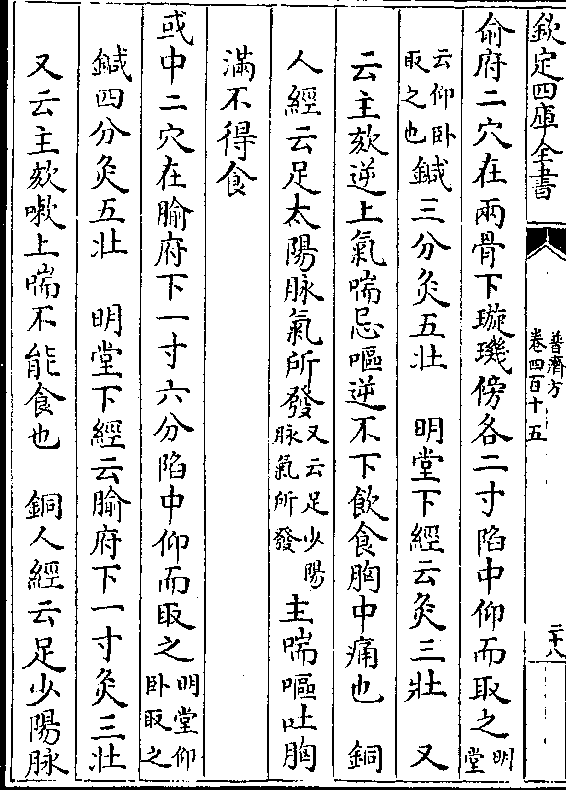 欽定四庫全書
普濟方
卷四百十五
二十八
俞府二穴在兩骨下璇璣傍各二寸陷中仰而取之明堂
云仰卧取之也鍼三分灸五壯　明堂下經云灸三壯　又
云主欬逆上氣喘忌嘔逆不下飲食胸中痛也　銅
人經云足太陽脉氣所發又云足少陽脉氣所發主喘嘔吐胸
滿不得食
或中二穴在腧府下一寸六分陷中仰而取之明堂仰卧取之
鍼四分灸五壯　明堂下經云腧府下一寸灸三壯
又云主欬嗽上喘不能食也　銅人經云足少陽脉